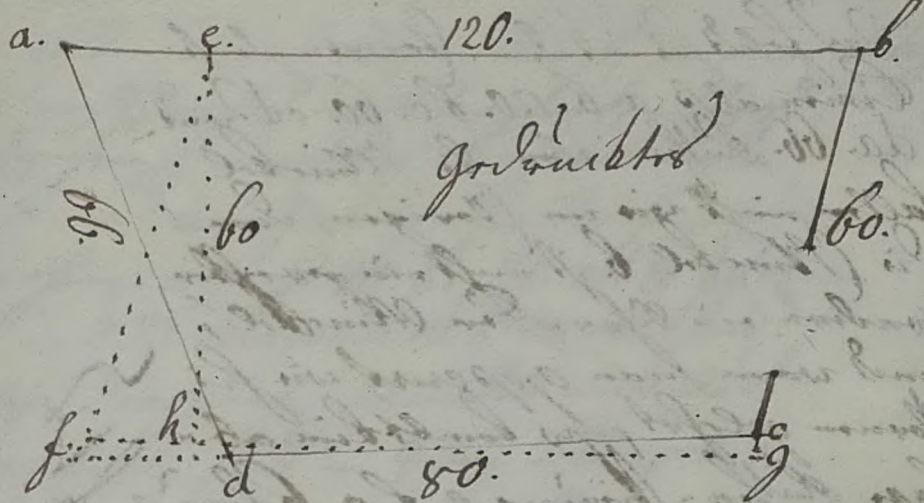 a. e. 120. b.
gedrucktes
60 60.
f h d 80. c
g